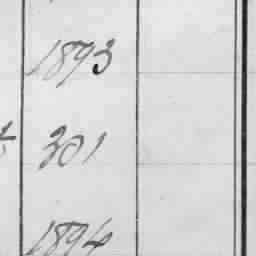 1893
301
1894